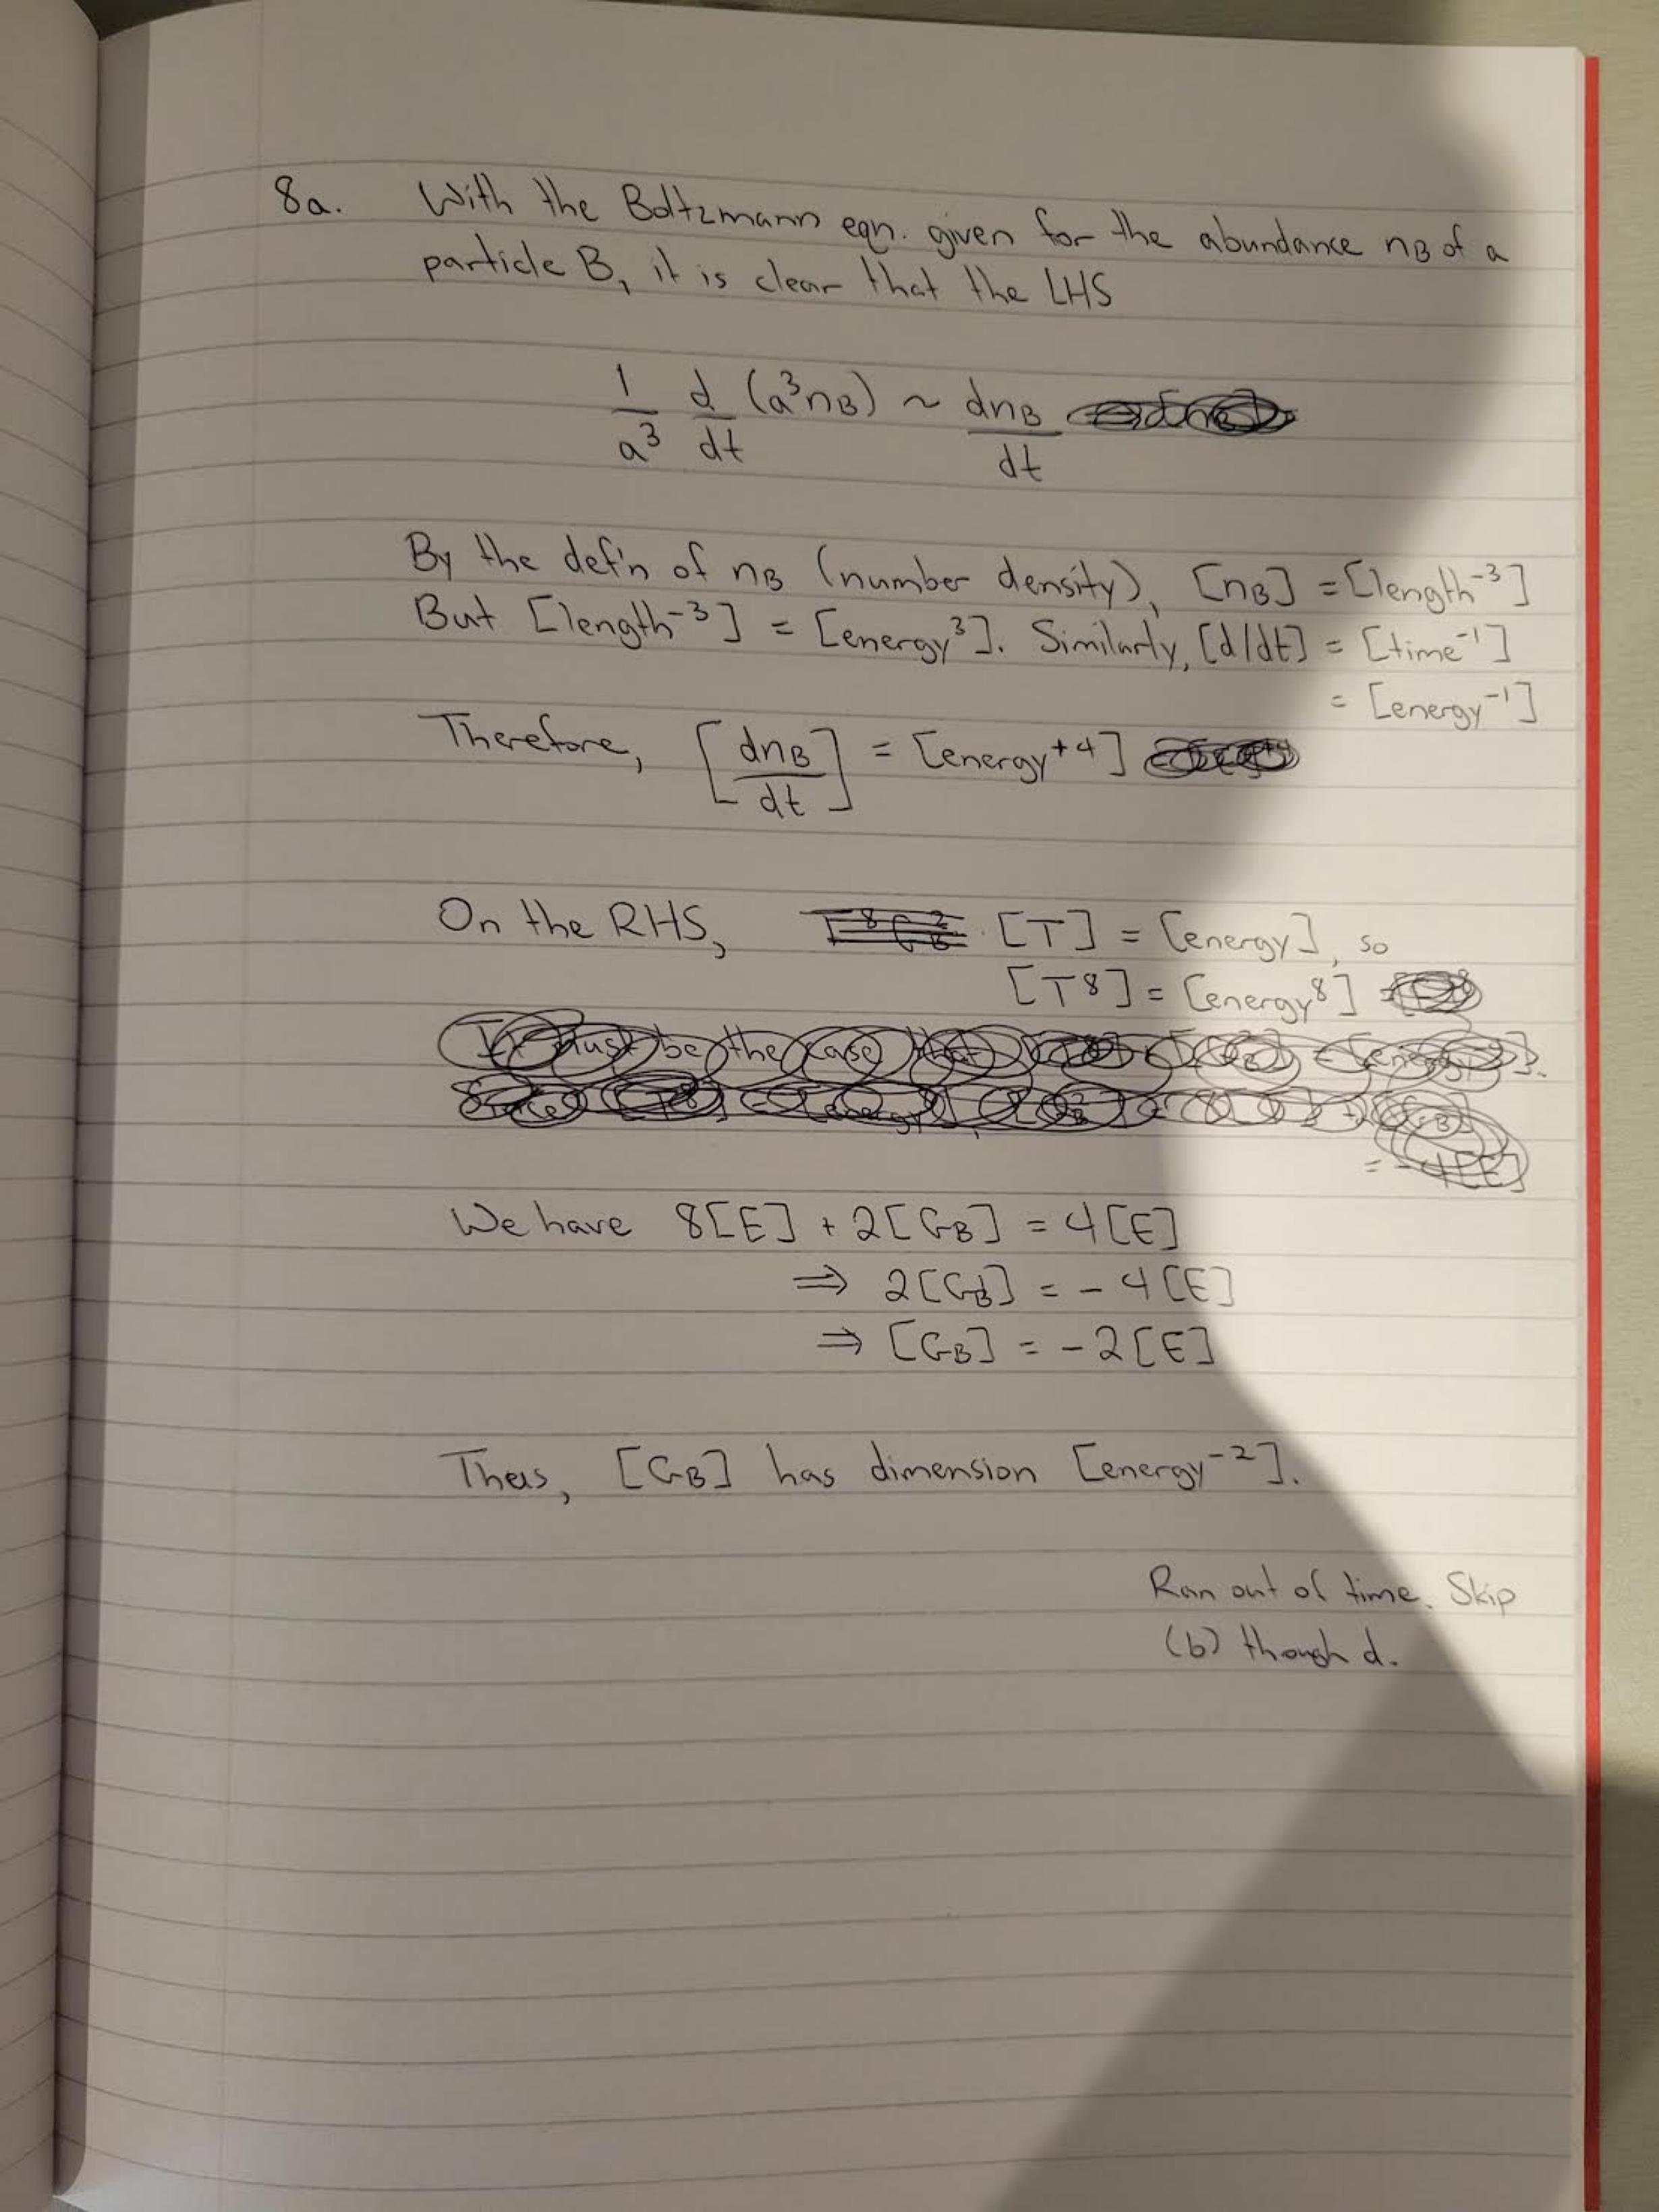 8a. With the Boltzmann eqn. given for the abundance nB of a
particle B, it is clear that the LHS
1/a³ d/dt (a³nB) ~ dnB/dt
By the def'n of nB (number density), [nB] = [length⁻³]
But [length⁻³] = [energy³]. Similarly, [d/dt] = [time⁻¹]
= [energy⁻¹]
Therefore, [dnB/dt] = [energy⁺⁴]
On the RHS, [T] = [energy], so
[T⁸] = [energy⁸]
We have 8[E] + 2[GB] = 4[E]
⇒ 2[GB] = -4[E]
⇒ [GB] = -2[E]
Thus, [GB] has dimension [energy⁻²].
Ran out of time. Skip
(b) though d.